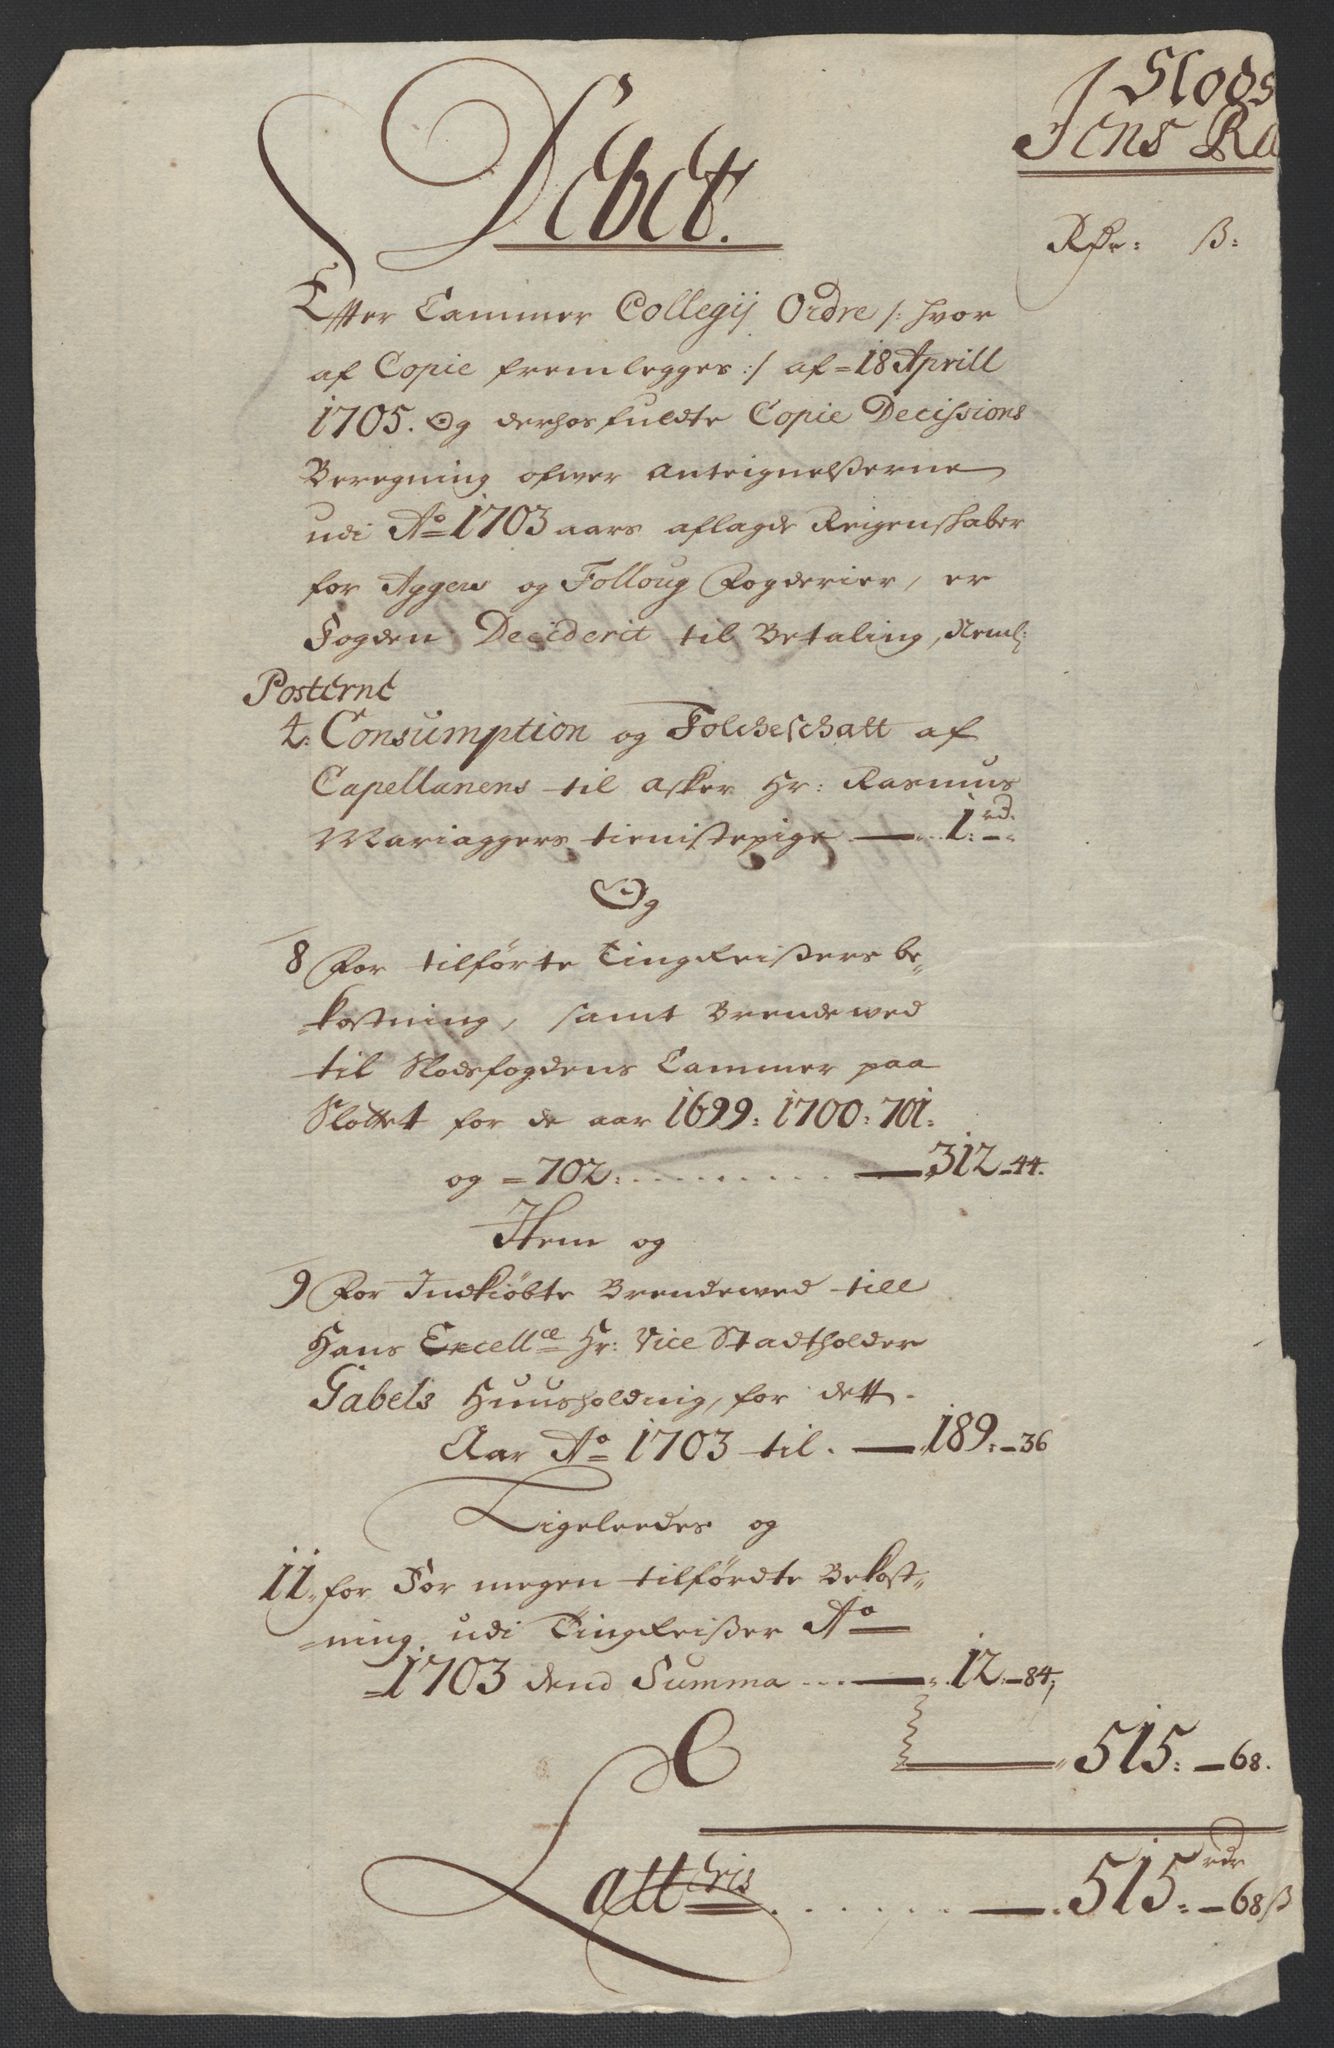 Slods
Jens Ra
Debet.
Rdr: ß:
Effter Cammer Collegij Ordre /: hvor
af Copie fremlegges :/ af = 18 Aprill
1705. Og derhos fuldte Copie Decissions
Beregning ofver Anteignelßerne
udi Ao 1703 aars aflagde Reigenskaber
for Aggers og Folloug Fogderier, er
Fogden Deciderit til Betaling, Neml:
Posterne
4. Consumption og Folcheschatt af
Capellanens til Asker Hr: Rasmus
Mariaggers tienistepige — 1 rd: –
Og
8 For tilførte Tingreißers be„
„kostning, samt Brendeved
til Slodsfogdens Cammer paa
Slottet for de aar 1699: 1700: 701:
og = 702: . . . . . . . . . — 312 – 44.
Item og
9 For Indkiøbte Brendeved till
Hans Excellce Hr: Vice Stadtholder
Gabels Huusholdnig, for dett
Aar Ao 1703 til. — 189: – 36
Ligeleedes og
11. for For megen tilførdte Bekost„
„ning udi Tingreißer Ao
= 1703 dend Summa . . . — 12: – 84;
515: – 68.
Latteris . . . . . . — 515 rdr: – 68 ß